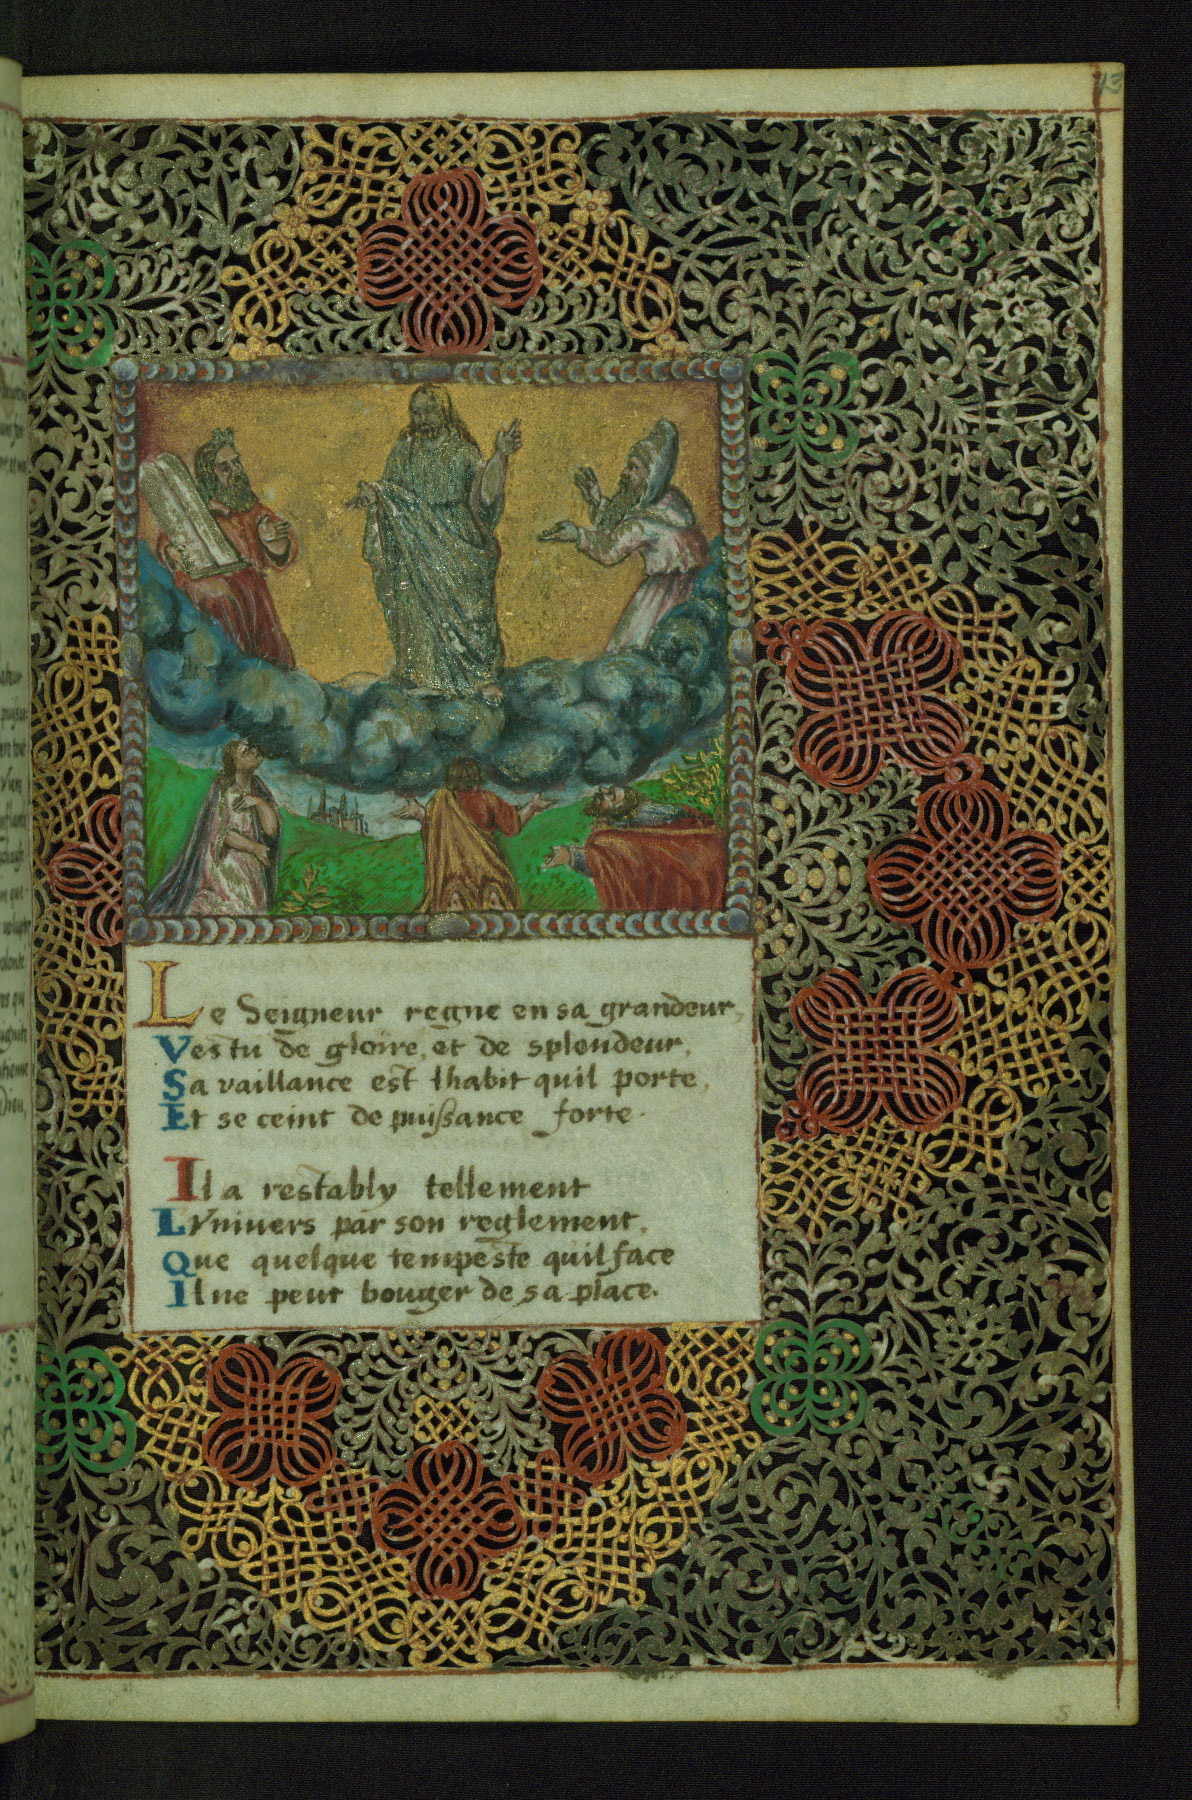 Le Seigneur regne en sa grandeur,
Vestu de gloire, et de splendeur,
Sa vaillance est lhabit quil porte,
Et se ceint de puissance forte.
Il a restably tellement
Lvnivers par son reglement,
Que quelque tempeste quil face
Il ne peut bouger de sa place.